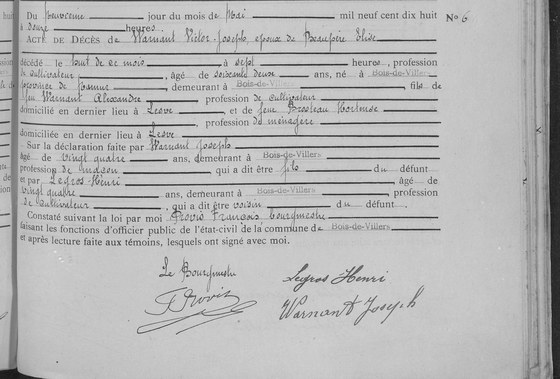 Du neuvieme jour du mois de Mai mil neuf cent dix huit No 6
à douze heures.
ACTE DE DÉCÈS de Warnant Victor-Joseph, epoux de Beaupère Elise
décédé le huit de ce mois à sept heures, profession
de cultivateur, âgé de soixante deux ans, né à Bois-de-Villers
province de Namur, demeurant à Bois-de-Villers, fils de
feu Warnant Alexandre profession de cultivateur
domicilié en dernier lieu à Lesve et de feue Brosteau Hortense
, profession de menagère
domiciliée en dernier lieu à Lesve
Sur la déclaration faite par Warnant Joseph
âgé de vingt quatre ans, demeurant à Bois-de-Villers
profession de maçon qui a dit être fils du défunt
et par Legros Henri âgé de
vingt quatre ans, demeurant à Bois-de-Villers, profession
de cultivateur, qui a dit être voisin du défunt.
Constaté suivant la loi par moi Provis François bourgmestre
faisant les fonctions d'officier public de l'état-civil de la commune de Bois-de-Villers
et après lecture faite aux témoins, lesquels ont signé avec moi.
Le Bourgmestre
Legros Henri
F Provis
Warnant Joseph